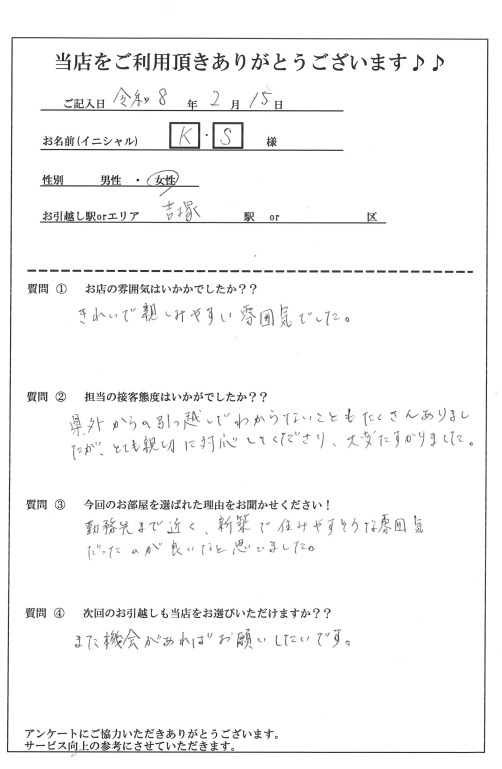 当店をご利用頂きありがとうございます♪♪
ご記入日 令和8年2月15日
お名前(イニシャル) K・S 様
性別 男性・女性
お引越し駅orエリア 吉塚 駅 or 区
質問 ① お店の雰囲気はいかかでしたか??
きれいで親しみやすい雰囲気でした。
質問 ② 担当の接客態度はいかがでしたか??
県外からの引っ越しでわからないこともたくさんありまし
たが、とても親切に対応してくださり、大変たすかりました。
質問 ③ 今回のお部屋を選ばれた理由をお聞かせください!
勤務先まで近く、新築で住みやすそうな雰囲気
だったのが良いなと思いました。
質問 ④ 次回のお引越しも当店をお選びいただけますか??
また機会があればお願いしたいです。
アンケートにご協力いただきありがとうございます。
サービス向上の参考にさせていただきます。